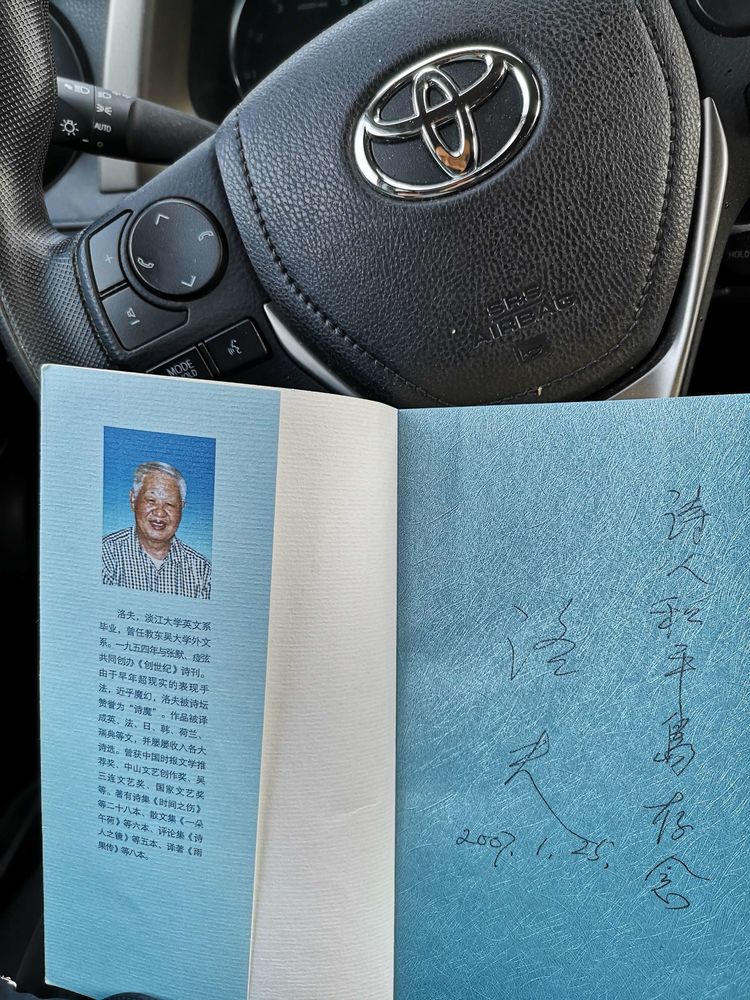 AUTO
+
MODE
HOLD
SRS
AIRBAG
洛夫，淡江大学英文系
毕业，曾任教东吴大学外文
系。一九五四年与张默、痖弦
共同创办《创世纪》诗刊。
由于早年超现实的表现手
法，近乎魔幻，洛夫被诗坛
赞誉为“诗魔”。作品被译
成英、法、日、韩、荷兰、
瑞典等文，并屡屡收入各大
诗选。曾获中国时报文学推
荐奖、中山文艺创作奖、吴
三连文艺奖、国家文艺奖
等。著有诗集《时间之伤》
等二十八本、散文集《一朵
午荷》等六本、评论集《诗
人之镜》等五本、译著《雨
果传》等八本。
诗人和平岛存念
洛夫
2007.1.25.